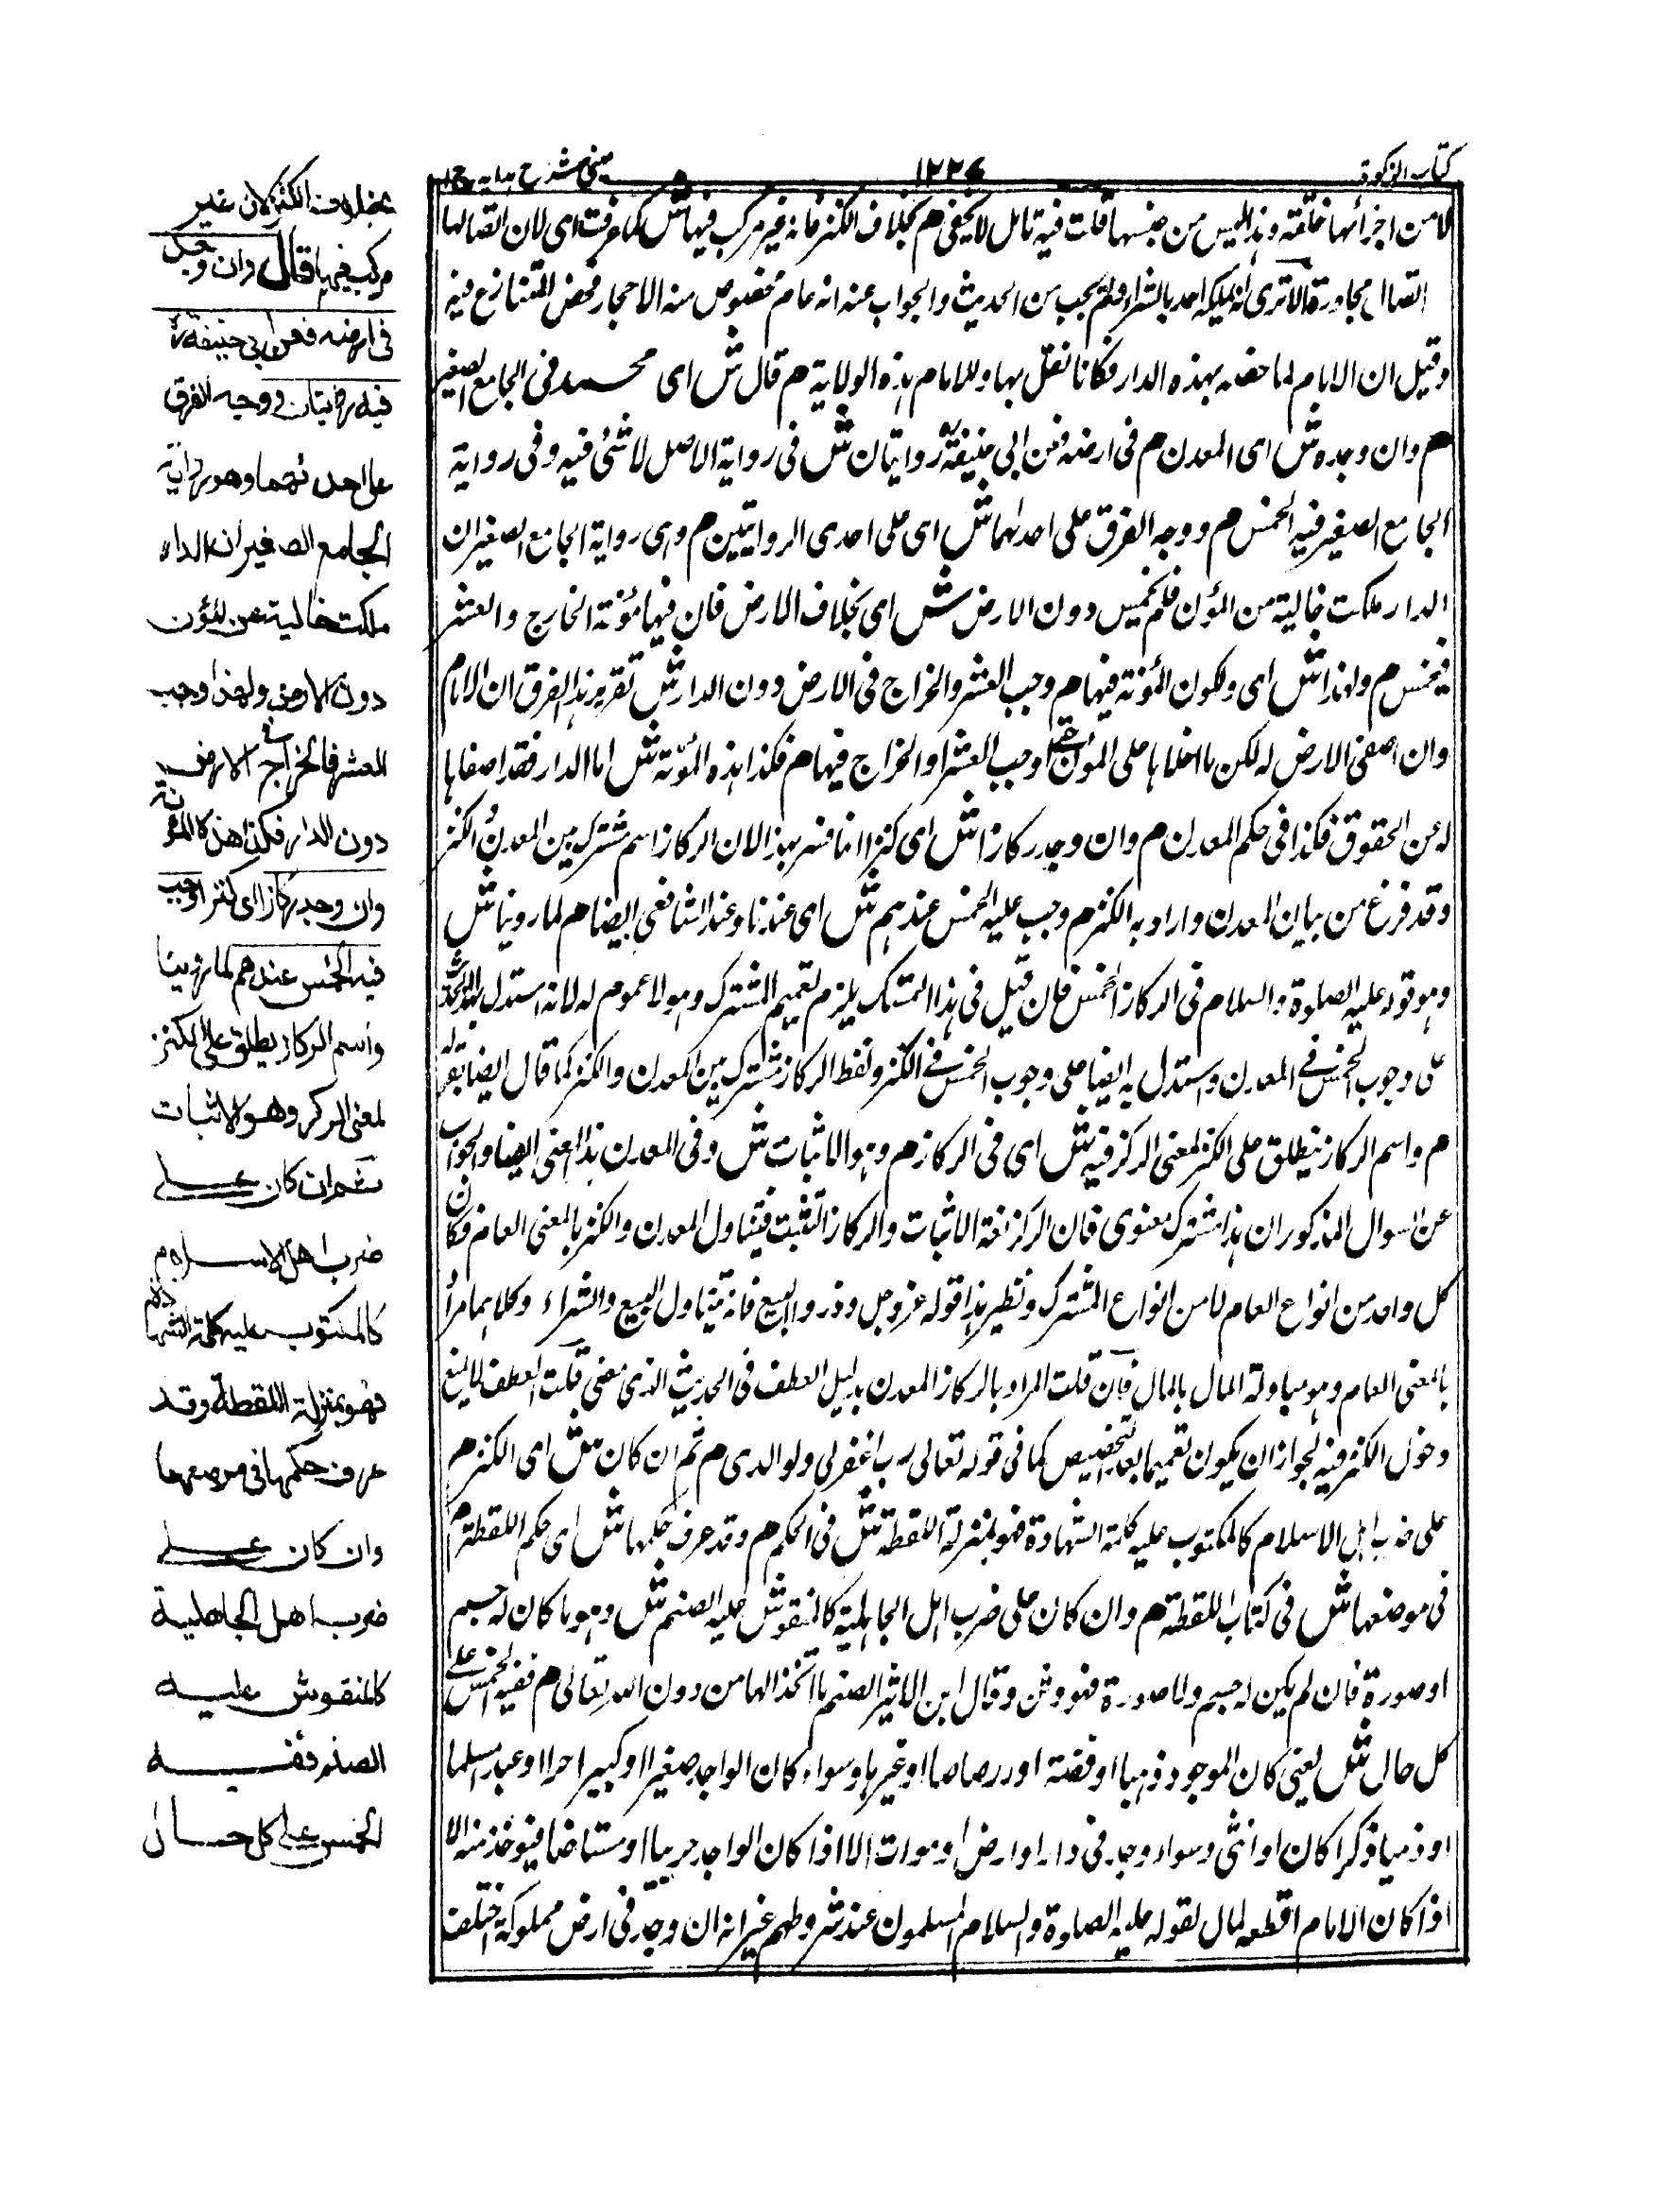 كتاب الزكوة
١٢٢٤
عينى شرح هدايه ج ١
لا من اجزائها خلقته وهذا ليس من جنسها قلت فيه تامل لا يخفى هم بخلاف الكنز فانه غير مركب فيها ش كما عرفت اى لان اتصالها
اتصال مجاورة الا ترى انه يملكه احد بالشراء ولم يجب من الحديث والجواب عنه انه عام مخصوص منه الاحجار فخص المتنازع فيه
وقيل ان الامام لما خصه بهذه الدار فكانا نفل بها وللامام هذه الولاية هم قال ش اى محمد فى الجامع الصغير
هم وان وجده ش اى المعدن م فى ارضه فعن ابى حنيفة روايتان ش فى رواية الاصل لا شئ فيه وفى رواية
الجامع الصغير فيه الخمس م ووجه الفرق على احدهما ش اى على احدى الروايتين م وهى رواية الجامع الصغير ان
الدار ملكت خالية من المؤن فلم يخمس دون الارض ش اى بخلاف الارض فان فيها مؤنة الخارج والعشر
فيخمس م ولهذا ش اى ولكون المؤنة فيها هم وجب العشر والخراج فى الارض دون الدار ش تقرير هذا الفرق ان الامام
وان اصفى الارض له لكن ما اخلاها على المؤن حتى اوجب العشر او الخراج فيها هم فكذا هذه المؤنة ش اما الدار فقد اصفاها
له عن الحقوق فكذا فى حكم المعدن م وان وجد ركازا ش اى كنزا انما فسر بهذا لان الركاز اسم مشترك بين المعدن والكنز
وقد فرغ من بيان المعدن واراد به الكنز م وجب عليه الخمس عندهم ش اى عندنا وعند الشافعى ايضا هم لما روينا ش
وهو قوله عليه الصلوة والسلام فى الركاز الخمس فان قيل فى هذا التمسك يلزم تعميم المشترك وهو لا عموم له لانه استدل بهذا الحديث
على وجوب الخمس فى المعدن واستدل به ايضا على وجوب الخمس فى الكنز ولفظ الركاز مشترك بين المعدن والكنز كما قال ايضا بقوله
م واسم الركاز ينطلق على الكنز لمعنى الركز فيه ش اى فى الركاز هم وهو الاثبات ش وفى المعدن هذا المعنى ايضا والجواب
عن السوال المذكور ان هذا مشترك معنوى فان الركز لغة الاثبات والركاز المثبت فيتناول المعدن والكنز بالمعنى العام فكان
كل واحد من انواع العام لا من انواع المشترك ونظير هذا قوله عز وجل وذروا البيع فانه يتناول البيع والشراء وكلاهما مراد
بالمعنى العام وهو مبادلة المال بالمال فان قلت المراد بالركاز المعدن بدليل العطف فى الحديث الذى مضى قلت العطف لا يمنع
دخول الكنز فيه لجواز ان يكون تعميما بعد تخصيص كما فى قوله تعالى رب اغفر لى ولوالدى م ثم ان كان ش اى الكنز هم
على ضرب اهل الاسلام كالمكتوب عليه كلمة الشهادة فهو بمنزلة اللقطة ش فى الحكم هم وقد عرف حكمها ش اى حكم اللقطة م
فى موضعها ش فى كتاب اللقطة هم وان كان على ضرب اهل الجاهلية كالمنقوش عليه الصنم ش وهو ما كان له جسم
او صورة فان لم يكن له جسم ولا صورة فهو وثن وقال ابن الاثير الصنم ما اتخذ الها من دون الله تعالى م ففيه الخمس على
كل حال ش يعنى كان الموجود ذهبا او فضة او رصاصا او غيرها وسواء كان الواجد صغيرا او كبيرا حرا او عبدا مسلما
او ذميا ذكرا كان او انثى وسواء وجد فى دار او ارض او موات الا اذا كان الواجد حربيا او مستامنا فيؤخذ منه الا
اذا كان الامام اقطعه لمال لقوله عليه الصلوة والسلام المسلمون عند شروطهم غير انه ان وجد فى ارض مملوكة اختلف
بخلاف الكنز لانه غير
مركب فيها قال وان وجد
فى ارضه فعن ابى حنيفة
فيه روايتان ووجه الفرق
على احدهما وهو رواية
الجامع الصغير ان الدار
ملكت خالية عن المؤن
دون الارض ولهذا وجب
العشر والخراج فى الارض
دون الدار فكذا هذه المؤنة
وان وجد ركازا اى كنزا وجب
فيه الخمس عندهم لما روينا
واسم الركاز يطلق على الكنز
لمعنى الركز وهو الاثبات
ثم ان كان على
ضرب اهل الاسلام
كالمكتوب عليه كلمة الشهادة
فهو بمنزلة اللقطة وقد
عرف حكمها فى موضعها
وان كان على
ضرب اهل الجاهلية
كالمنقوش عليه
الصنم ففيه
الخمس على كل حال